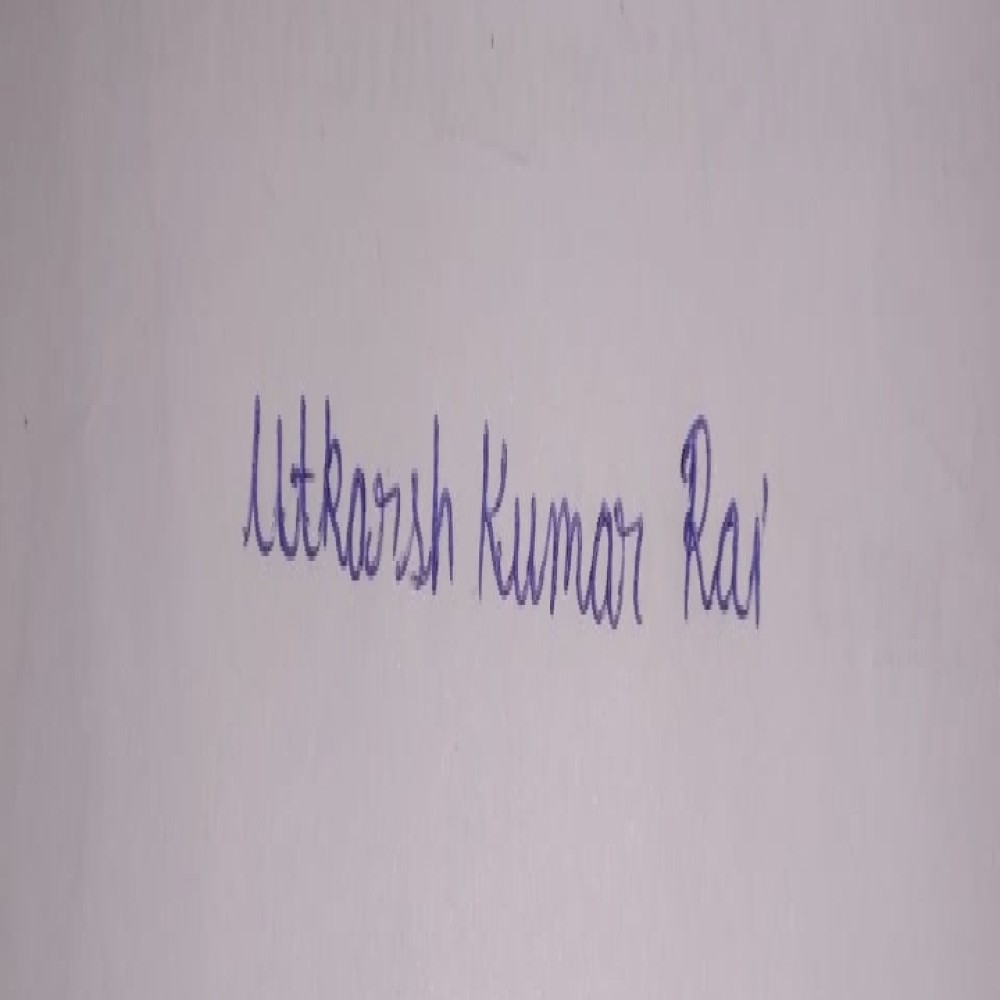 Utkarsh Kumar Rai